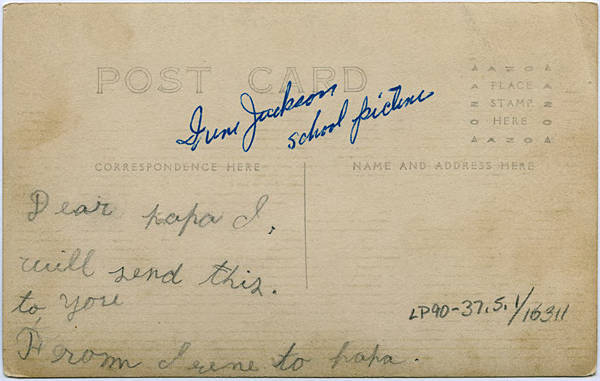 POST CARD
Irene Jackson
school picture
PLACE
STAMP
HERE
CORRESPONDENCE HERE
NAME AND ADDRESS HERE
Dear papa I.
will send this.
to you
From Irene to papa.
LP90-37.5.1/16311